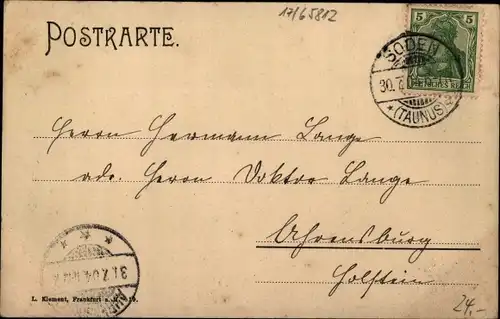 17/65812
POSTKARTE.
5 5
DEUTSCHES REICH
SODEN
30.7.
*(TAUNUS)*
Herrn Hermann Lange
adr. Herrn Doktor Lange
Ahrensburg
Holstein
31.7.04
L. Klement, Frankfurt a. M.
24,-